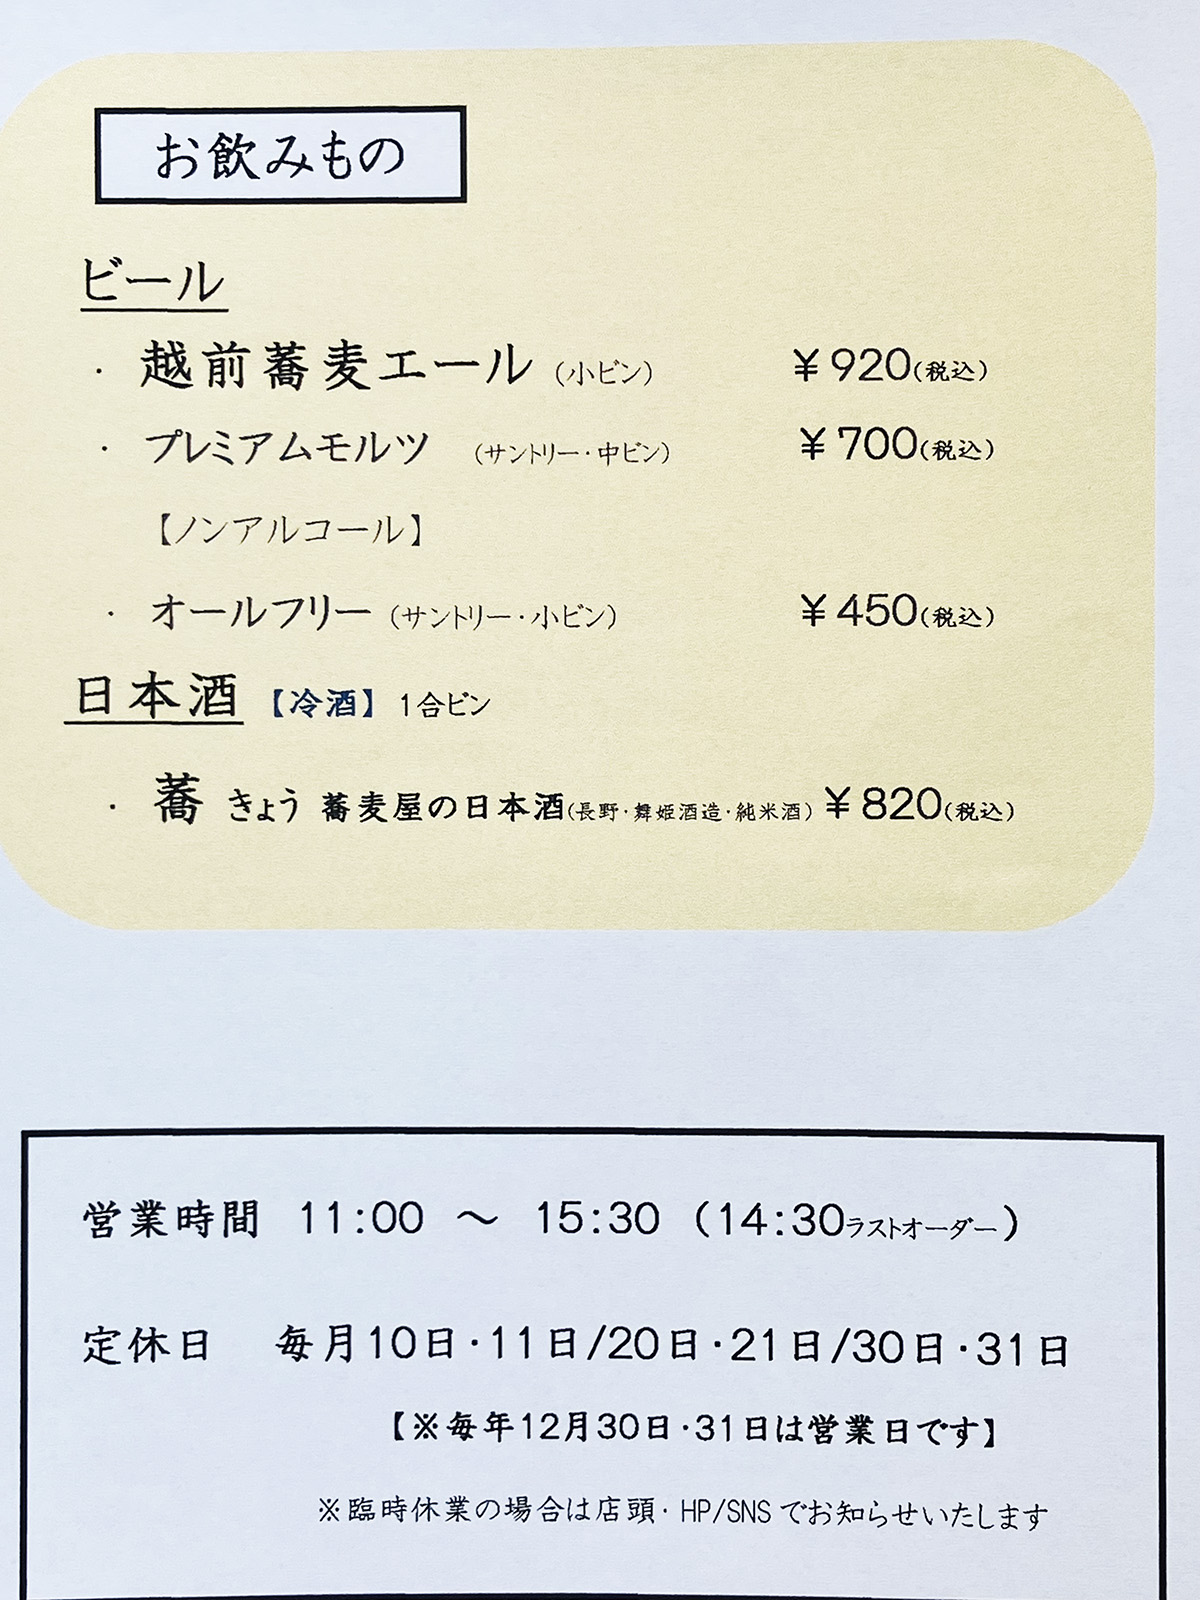 お飲みもの
ビール
・ 越前蕎麦エール （小ビン） ￥920(税込)
・ プレミアムモルツ （サントリー・中ビン） ￥700(税込)
【ノンアルコール】
・ オールフリー （サントリー・小ビン） ￥450(税込)
日本酒 【冷酒】 1合ビン
・ 蕎 きょう 蕎麦屋の日本酒(長野・舞姫酒造・純米酒) ￥820(税込)
営業時間 11:00 ～ 15:30 （14:30ラストオーダー）
定休日 毎月10日・11日/20日・21日/30日・31日
【※毎年12月30日・31日は営業日です】
※臨時休業の場合は店頭・HP/SNSでお知らせいたします